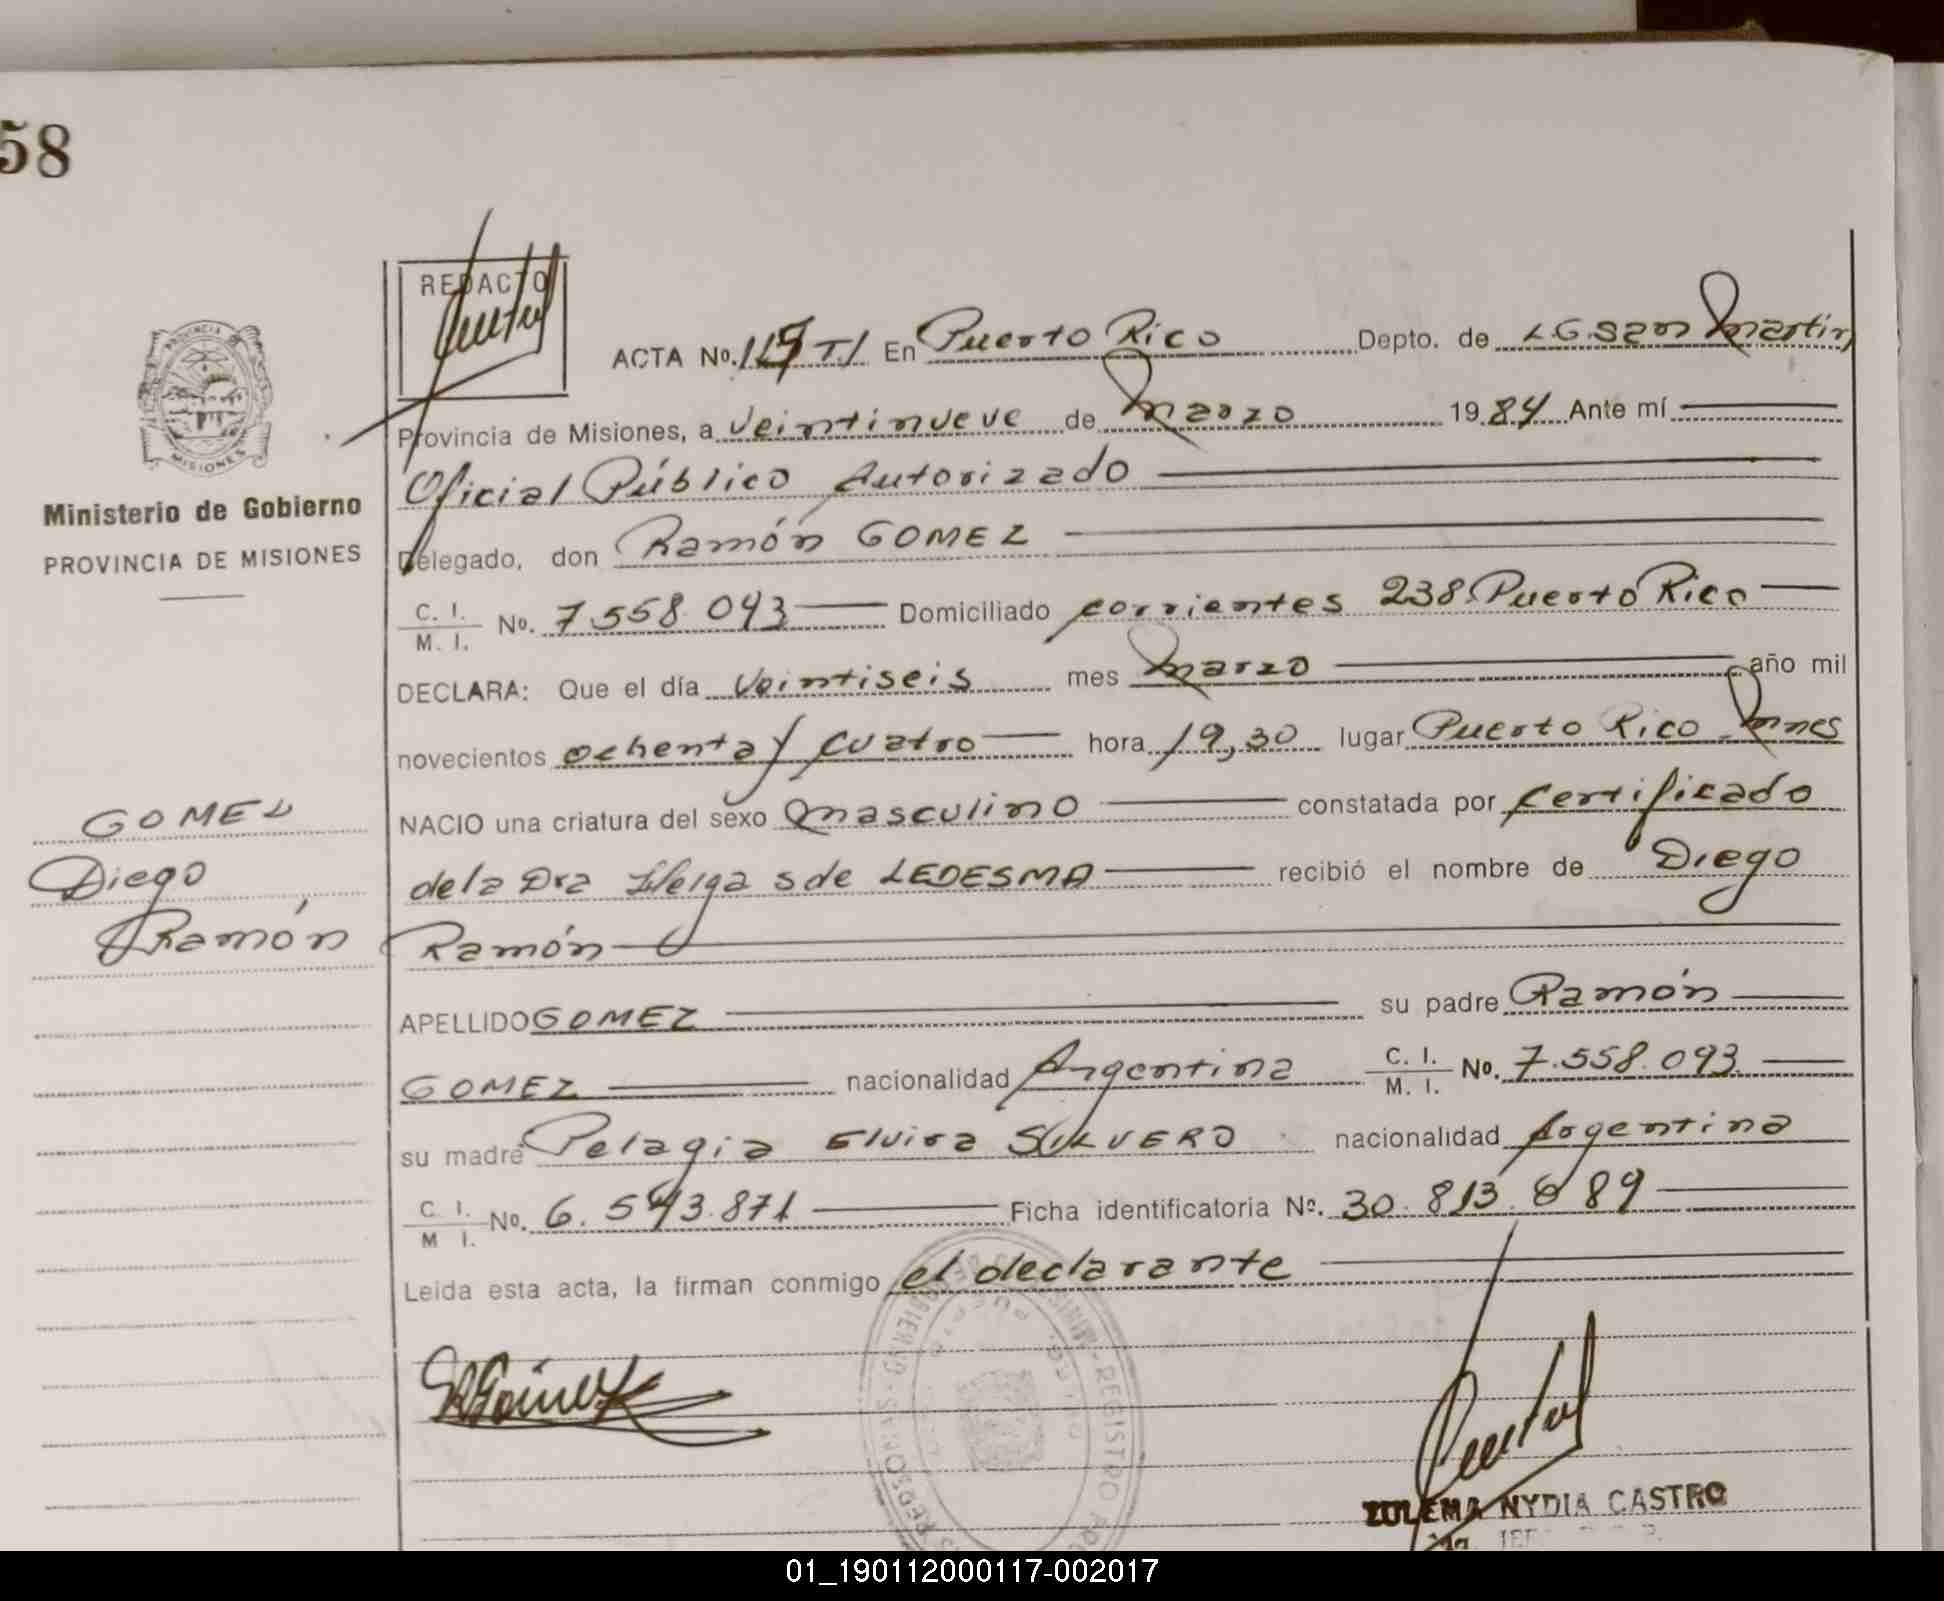 58
REDACTO
ACTA No. 115 T.I En Puerto Rico Depto. de L.G.San Martin
Provincia de Misiones, a veintinueve de Marzo 1984 Ante mí
Oficial Público Autorizado
Delegado, don Ramón GOMEZ
C. I.
M. I. No. 7.558.093 Domiciliado corrientes 238 Puerto Rico
DECLARA: Que el día Veintiseis mes Marzo año mil
novecientos ochenta y cuatro hora 19,30 lugar Puerto Rico Mnes
NACIO una criatura del sexo masculino constatada por certificado
de la Dra Helga S de LEDESMA recibió el nombre de Diego
Ramón
APELLIDO GOMEZ su padre Ramón
GOMEZ nacionalidad Argentina C. I.
M. I. No. 7.558.093
su madre Pelagia Elvira SILVERO nacionalidad Argentina
C. I.
M I. No. 6.543.871 Ficha identificatoria Nº. 30.813.889
Leida esta acta, la firman conmigo el declarante
PROVINCIA DE
MISIONES
Ministerio de Gobierno
PROVINCIA DE MISIONES
GOMEZ
Diego
Ramón
RGómez
ZULEMA NYDIA CASTRO
01_190112000117-002017